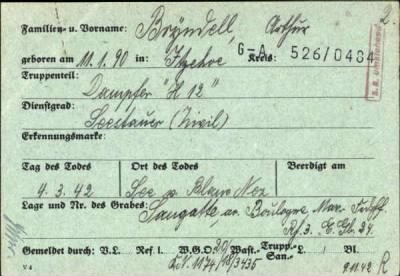 2.
Familien- u. Vorname: Bründell, Arthur
G-A 526/0484
geboren am 11.1.90 in: Itzehoe Kreis:
Truppenteil:
Dampfer "H 12"
Dienstgrad:
Seestauer (Zivil)
Erkennungsmarke:
Tag des Todes Ort des Todes Beerdigt am
4.3.42 See v. Blanc Nez
Lage und Nr. des Grabes: Sangatte, an Boulogne, Mar.
Rf. 3. E. Gb. 24.
Gemeldet durch: V.L. Ref I. W.G.O. 20 Wast.- Trupp.- San.- L/ Bl.
1174/18/3435
V 4 9.11.42 R